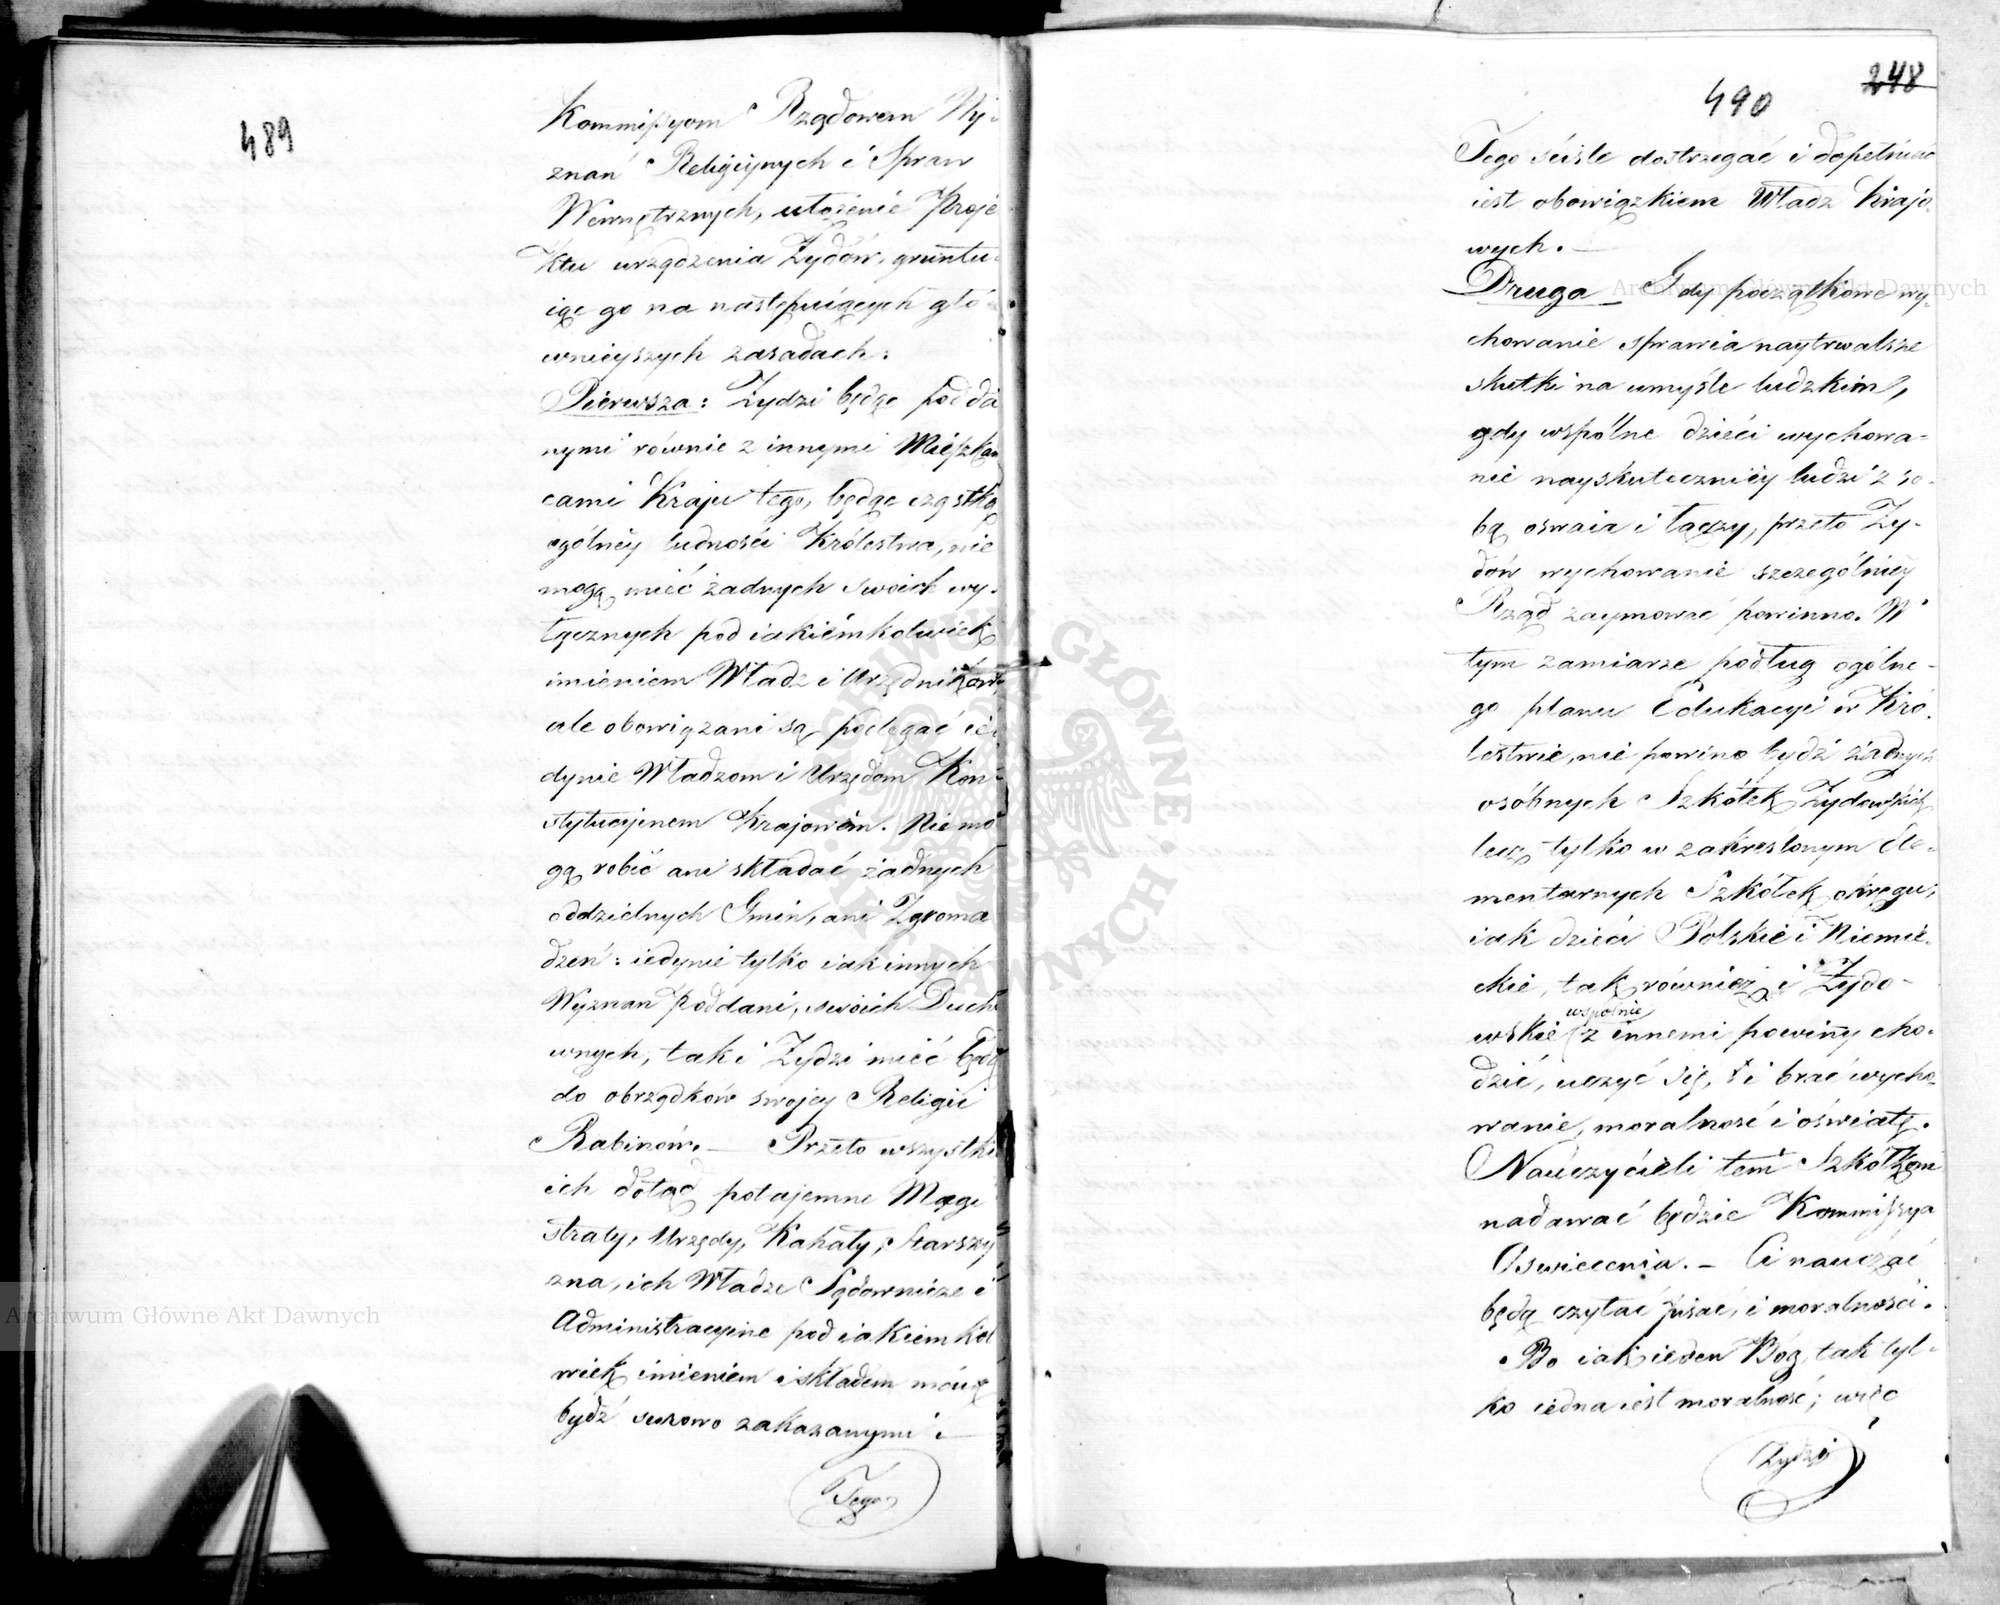 489
Kommissyom Rządowem Wy-
znań Religiynych i Spraw
Wewnętrznych, ułożenie Proje
Ktu urządzenia Żydów, gruntu-
iąc go na następuiących głó
wnieyszych zasadach:
Pierwsza: Żydzi będąc podda
nymi równie z innymi Mieszkań
cami Kraju tego, będąc cząstką
ogólney ludności Królestwa, nie
mogą mieć żadnych swoich wy-
łącznych pod iakiémkolwiek
imieniem Władz i Urzędników
ale obowiązani są podlegać ie-
dynie Władzom i Urzędom Kon-
stytucyinem Krajowém. Nie mo
gą robić ani składać żadnych
oddzielnych Gmin, ani Zgroma
dzeń: iedynie tylko iak innych
Wyznan poddani, swoich Ducho
wnych, tak i Żydzi mieć będą
do obrządków swojey Religii
Rabinów. — Przeto wszystkie
ich dotąd potajemne Magi
straty, Urzędy, Kahały, Starszy
zna, ich Władze Sądownicze i
Administracyine pod iakiem kol
wiek imieniem i składem maią
bydź surowo zakazanymi i —
Tego
248
490
Tego ściśle dostrzegać i dopełniać
iest obowiązkiem Władz Krajo-
wych. —
Druga — Gdy początkowe wy-
chowanie sprawia naytrwalsze
skutki na umyśle ludzkim,
gdy wspólne dzieci wychowa-
nie nayskuteczniey ludzi z so-
bą oswaia i łączy, przeto Ży-
dów wychowanie szczególniey
Rząd zaymować powinno. W
tym zamiarze podług ogólne-
go planu Edukacyi w Kró-
lestwie, nie powino bydź żadnych
osóbnych Szkółek Żydowskich
lecz tylko w zakreślonym Ele-
mentarnych Szkółek okręgu,
iak dzieci Polskie i Niemie-
ckie, tak równiez i Żydo-
wspólnie
wskie z innemi powiny cho-
dzić, uczyć się, i brać wycho-
wanie, moralność i oświatę.
Nauczycieli temi Szkółkom
nadawać będzie Kommissya
Oswiecenia. — Ci nauczać
będą czytać pisać, i moralności.
Bo iak ieden Bóg, tak tyl-
ko iedna iest moralność; więc
Żydzi
Archiwum Główne Akt Dawnych
Archiwum Główne Akt Dawnych
ARCHIWUM GŁÓWNE AKT DAWNYCH